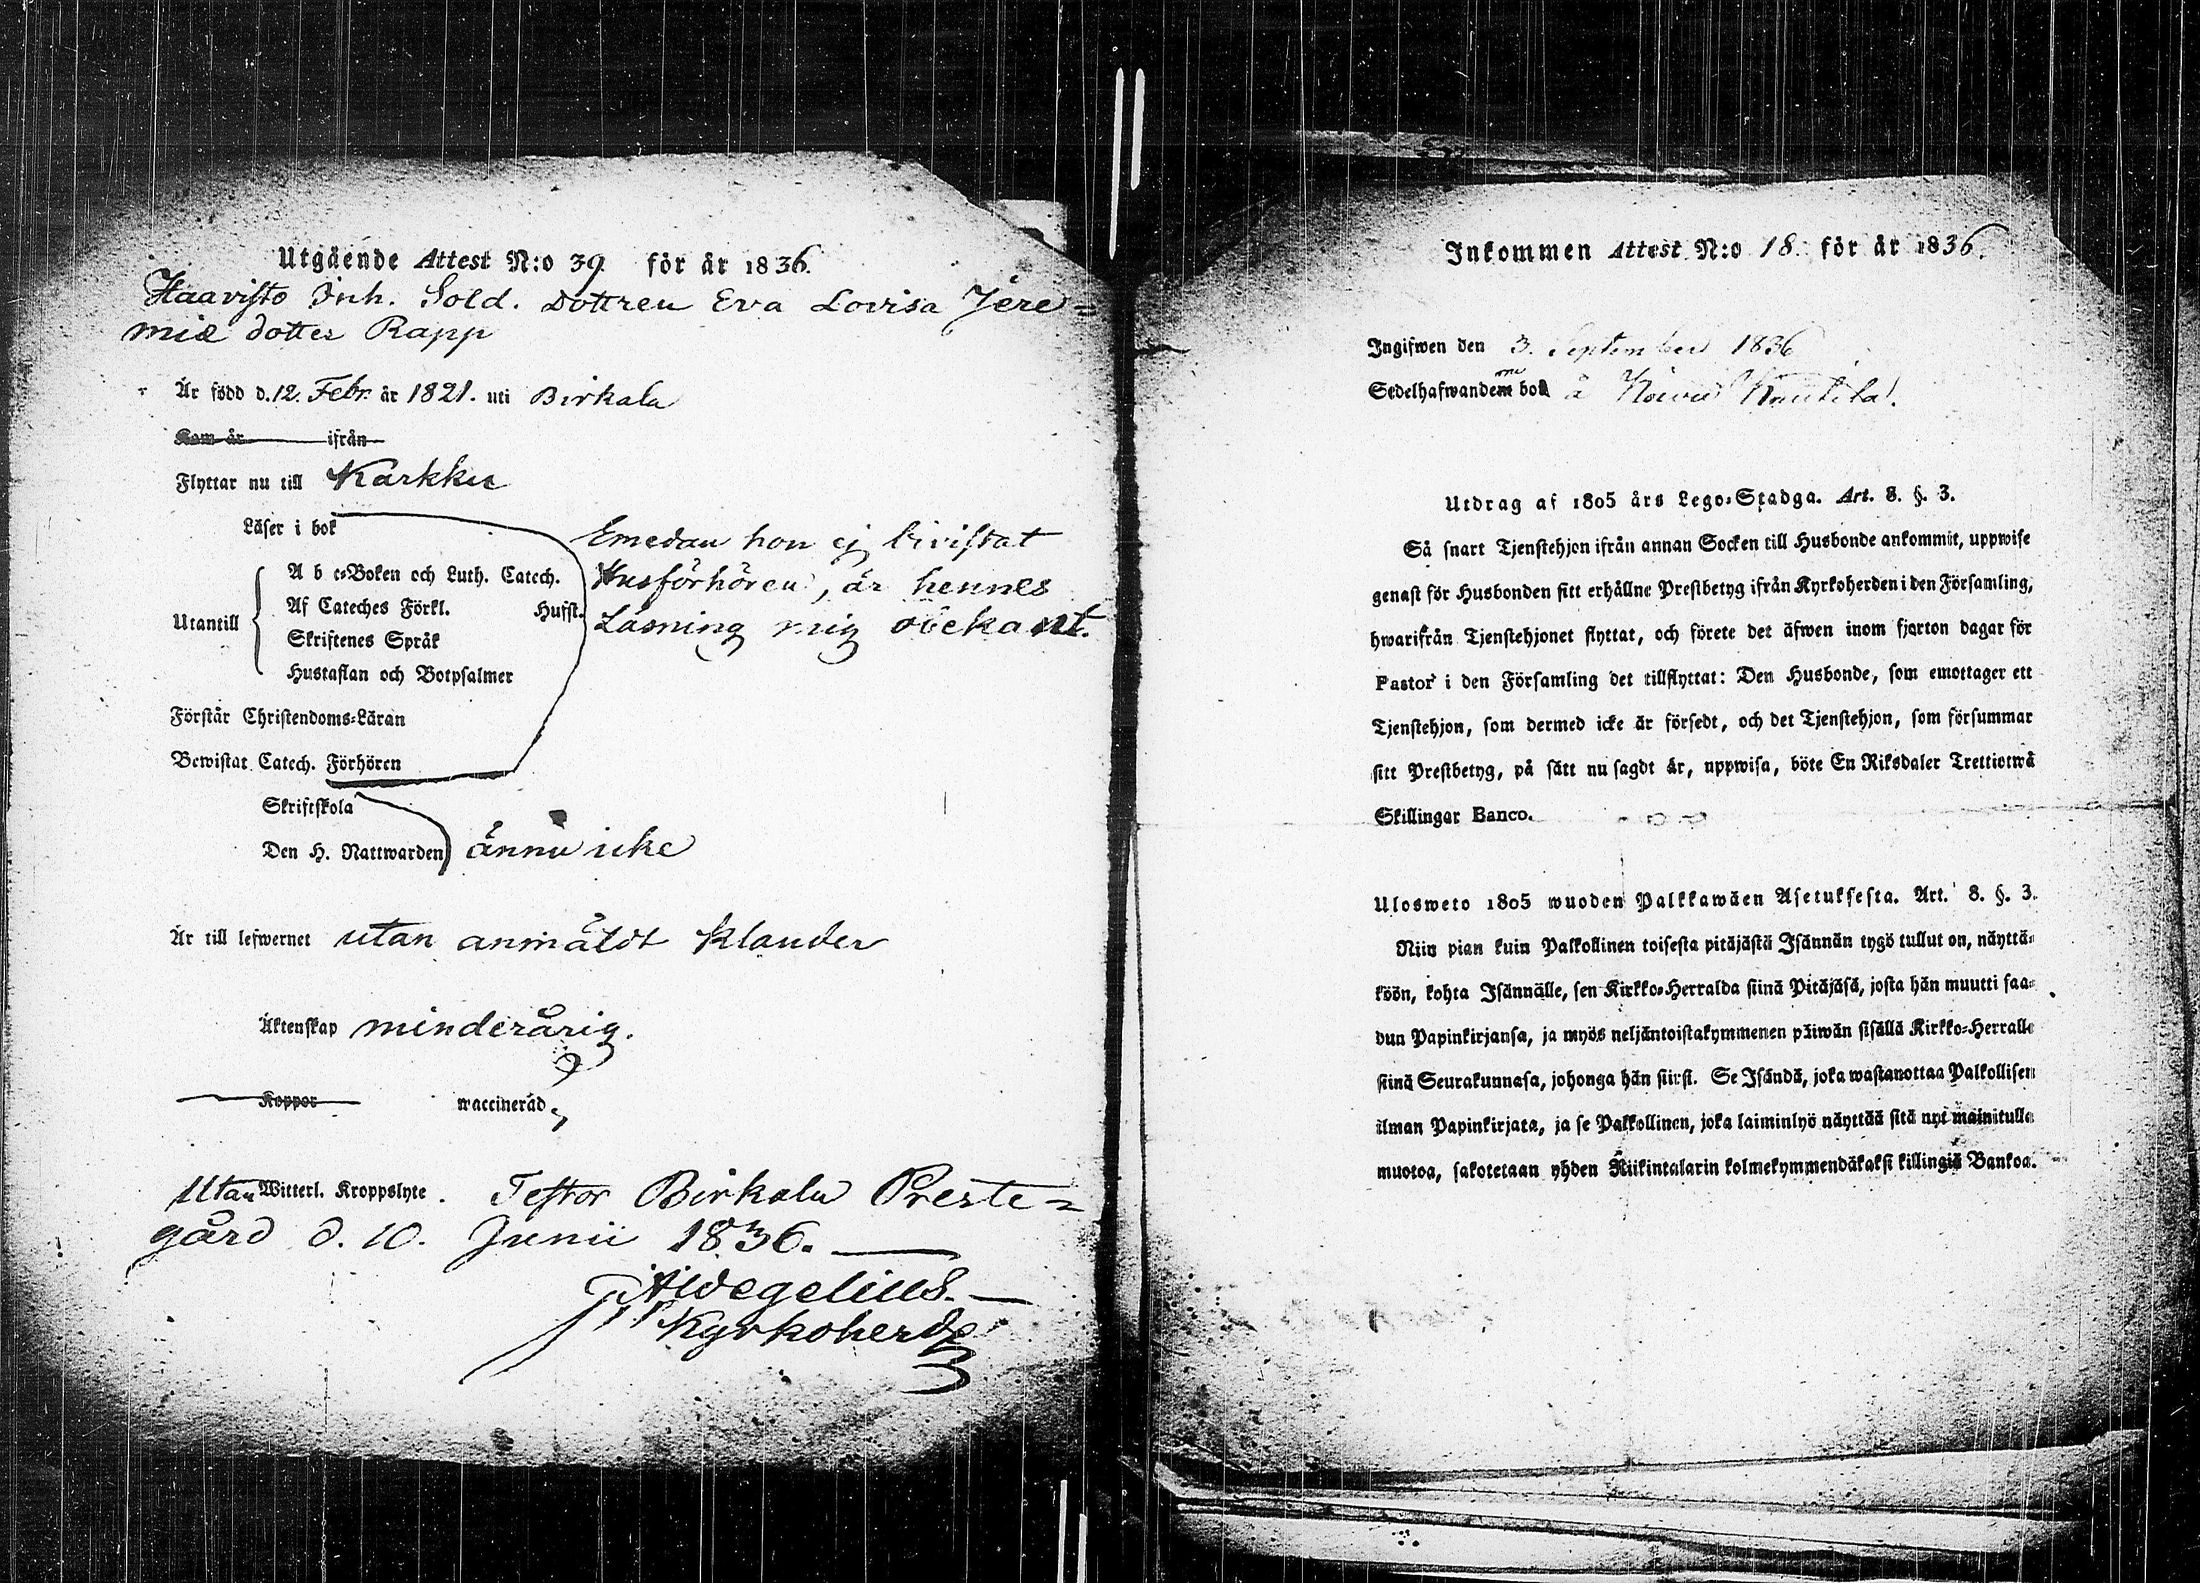 Utgående Attest N:o 39 för år 1836.
Haavisto Inh. Sold. Dottren Eva Lovisa Jere=
miæ dotter Rapp
Är född d. 12. Febr. år 1821. uti Birkala
Kom år ifrån
Flyttar nu till Karkku
Läser i bok
Emedan hon ej bivistat
A b c=Boken och Luth. Catech.
Husförhören, är hennes
Af Cateches Förkl. Husst.
Utantill
Läsning mig obekant.
Skriftenes Språk
Hustaflan och Botpsalmer
Förstår Christendoms=Läran
Bewistat Catech. Förhören
Skriftskola
Den H. Nattwarden ännu icke
Är till lefwernet utan anmäldt klander
Äktenskap minderårig.
Koppor waccineräd
Utan Witterl. Kroppslyte. Testor Birkala Preste=
gård d. 10. Junii 1836.
Aidegelius.
Kyrkoherde
Inkommen Attest N:o 18. för år 1836.
Ingifwen den 3. September 1836
Sedelhafwanden bor å
Utdrag af 1805 års Lego=Stadga. Art. 8. §. 3.
Så snart Tjenstehjon ifrån annan Socken till Husbonde ankommit, uppwise
genast för Husbonden sitt erhållne Prestbetyg ifrån Kyrkoherden i den Församling,
hwarifrån Tjenstehjonet flyttat, och förete det äfwen inom fjorton dagar för
Pastor i den Församling det tillflyttat: Den Husbonde, som emottager ett
Tjenstehjon, som dermed icke är försedt, och det Tjenstehjon, som försummar
sitt Prestbetyg, på sätt nu sagdt är, uppwisa, böte En Riksdaler Trettiotwå
Skillingar Banco.
Ulosweto 1805 wuoden Palkkawäen Asetuksesta. Art. 8. §. 3.
Niin pian kuin Palkollinen toisesta pitäjästä Isännän tygö tullut on, näyttä=
köön, kohta Isännälle, sen Kirkko=Herralda siinä Pitäjäsä, josta hän muutti saa=
dun Papinkirjansa, ja myös neljäntoistakymmenen päiwän sisällä Kirkko=Herralle
siinä Seurakunnasa, johonga hän siirsi. Se Isändä, joka wastanottaa Palkollisen
ilman Papinkirjata, ja se Palkollinen, joka laiminlyö näyttää sitä nyt mainitulla
muotoa, sakotetaan yhden Riikintalarin kolmekymmendäkaksi killingiä Bankoa.